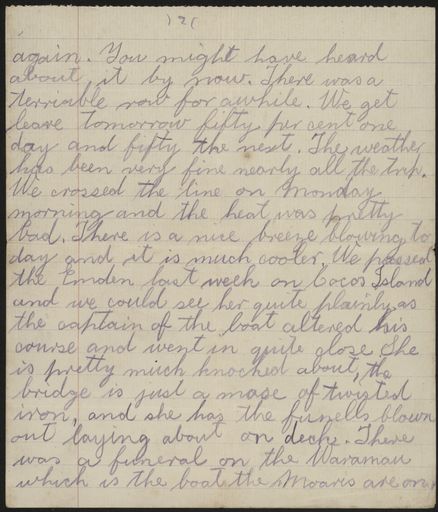 )2(
again. You might have heard
about it by now. There was a
terriable row for awhile. We get
leave tomorrow fifty per cent one
day and fifty the next. The weather
has been very fine nearly all the trip.
We crossed the line on Monday
morning and the heat was pretty
bad. There is a nice breeze blowing to
day and it is much cooler. We passed
the Emden last week on Cocos Island
and we could see her quite plainly as
the captain of the boat altered his
course and went in quite close. She
is pretty much knocked about, the
bridge is just a mase of twisted
iron, and she has the funells blown
out laying about on deck. There
was a funeral on the Waramau
which is the boat the Moaris are on.